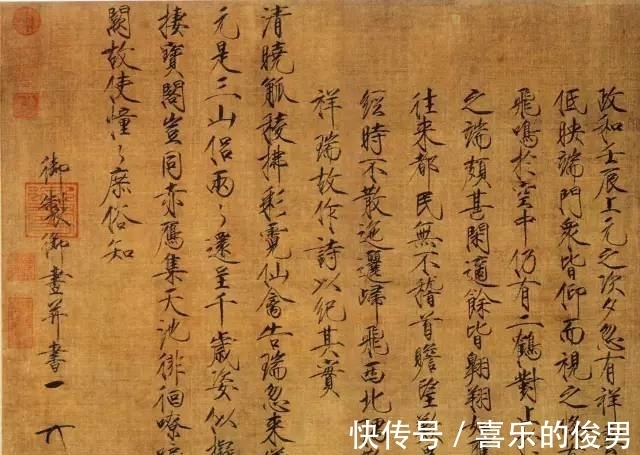 政和壬辰上元之次夕忽有祥
低映端門衆皆仰而視之倐
飛鳴於空中仍有二鶴對止
之端頗甚閑適餘皆翱翔如
往来都民無不稽首瞻望歎
經時不散迤邐歸飛西北隅
祥瑞故作詩以紀其實
清曉觚稜拂彩霓仙禽告瑞忽来
元是三山侶兩々還呈千歲姿似擬
棲寳閣豈同赤鴈集天池徘徊嘹唳
闕故使憧々庶俗知
御製御畫并書
快传号 / 喜乐的俊男